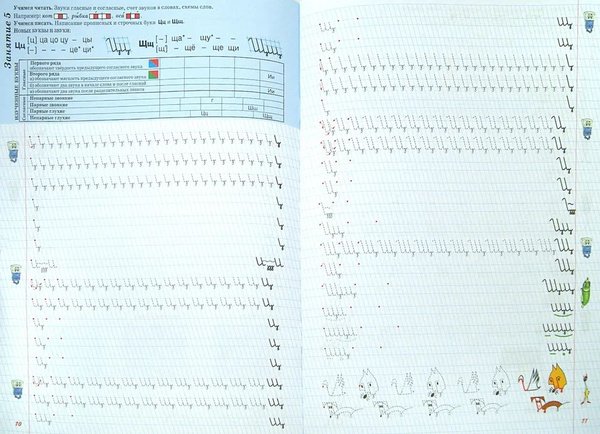 Занятие 5
Учимся читать. Звуки гласные и согласные, счет звуков в словах, схемы слов.
Например: кот, рыбка, оса
Учимся писать. Написание прописных и строчных букв Цц и Щщ.
Новые буквы и звуки:
Цц [ц] ца цо цу – цы
[–] – – – це* ци*
ИЗУЧЕННЫЕ БУКВЫ
Гласные
Первого ряда
обозначают твёрдость предыдущего согласного звука
Второго ряда
а) обозначают мягкость предыдущего согласного звука
б) обозначают два звука в начале слова и после гласной
в) обозначают два звука после разделительных знаков
Ии
Ии
Согласные
Непарные звонкие
Парные звонкие
Парные глухие
Непарные глухие
г
Шш
Цц
Щщ
10
Щщ [–] – ща* – щу* –
[щ] – щё – ще щи
11